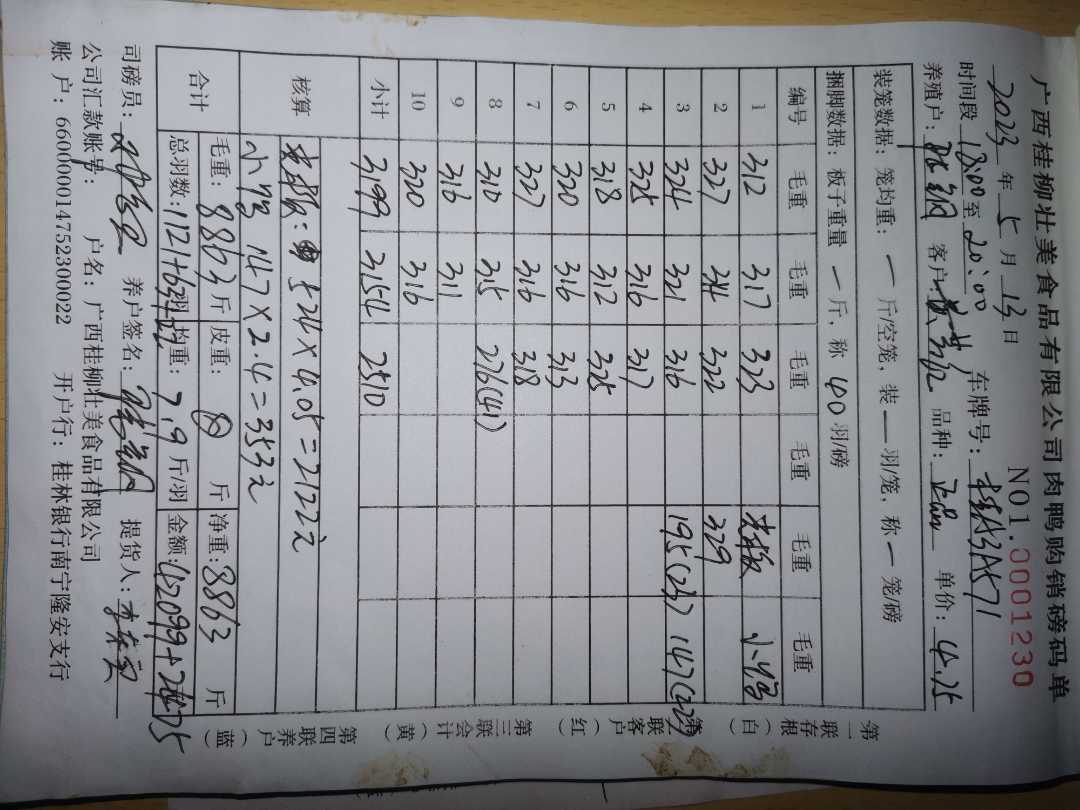 广西桂柳壮美食品有限公司肉鸭购销磅码单
NO1.0001230
2023 年 5 月 13 日 车牌号:
时间段 18:00 至 20:00
养殖户: 客户: 品种: 单价: 4.75
装笼数据: 笼均重: 一 斤/空笼, 装 一 羽/笼, 称 一 笼/磅
捆脚数据: 板子重量 一 斤, 称 40 羽/磅
编号 毛重 毛重 毛重 毛重 毛重 毛重
1 312 317 323
2 327 314 322 329
3 324 321 316 195(23) 147(22)
4 325 316 317
5 318 312 325
6 320 316 313
7 327 316 318
8 310 315 276(41)
9 316 311
10 320 316
小计 3199 3154 2510
核算 524×4.05=2122元
147×2.4=353元
合计 毛重: 8863 斤 皮重: 斤 净重: 8863 斤
总羽数: 1121+63+22 羽 均重: 7.9 斤/羽 金额: 42099+2475
司磅员: 养户签名: 提货人:
公司汇款账号: 户名: 广西桂柳壮美食品有限公司
账户: 660000014752300022 开户行: 桂林银行南宁隆安支行
第一联存根(白)
第二联客户(红)
第三联会计(黄)
第四联养户(蓝)